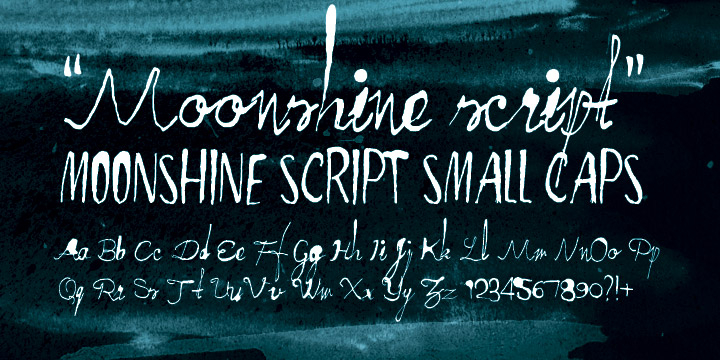 “Moonshine script”
MOONSHINE SCRIPT SMALL CAPS
Aa Bb Cc Dd Ee Ff Gg Hh Ii Jj Kk Ll Mm Nn Oo Pp
Qq Rr Ss Tt Uu Vv Ww Xx Yy Zz 1234567890?!+